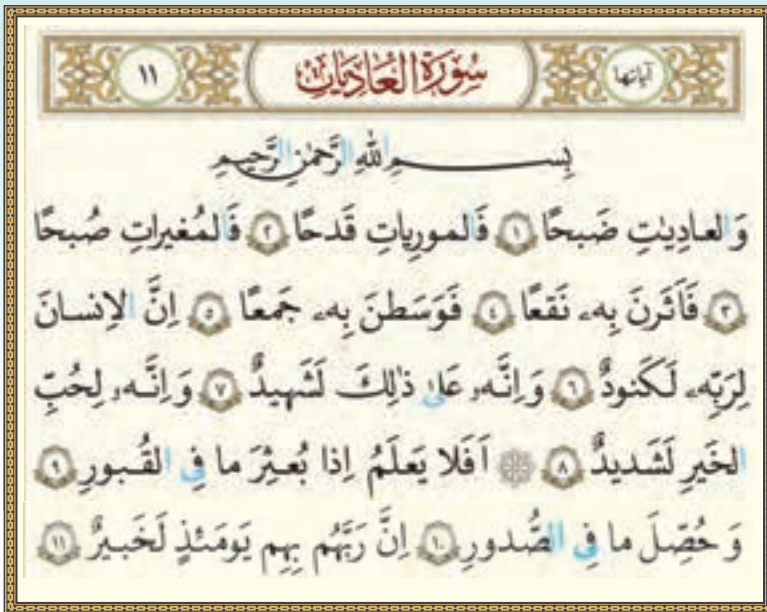 آیاتها سُورَةُ العَادِیَاتِ ۱۱
بِسـمِ اللّٰهِ الرَّحمٰنِ الرَّحیمِ
وَ العادِیٰتِ ضَبحًا ۱ فَالموریاتِ قَدحًا ۲ فَالمُغیراتِ صُبحًا
۳ فَاَثَرنَ بِهٖ نَقعًا ۴ فَوَسَطنَ بِهٖ جَمعًا ۵ اِنَّ الاِنسانَ
لِرَبِّهٖ لَكَنودٌ ۶ وَ اِنَّهٗ عَلیٰ ذٰلِكَ لَشَهیدٌ ۷ وَ اِنَّهٗ لِحُبِّ
الخَیرِ لَشَدیدٌ ۸ ۞ اَفَلا یَعلَمُ اِذا بُعثِرَ ما فِی القُبورِ ۹
وَ حُصِّلَ ما فِی الصُّدورِ ۱۰ اِنَّ رَبَّهُم بِهِم یَومَئِذٍ لَخَبیرٌ ۱۱